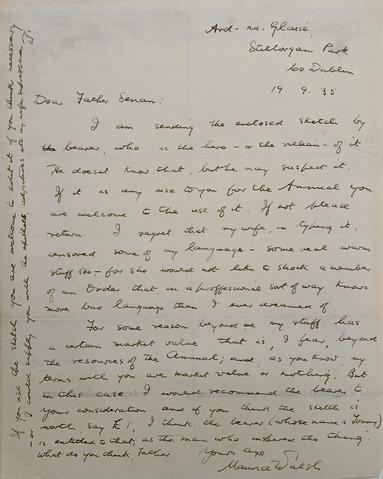 Ard-na-Glaise,
Stillorgan Park
Co Dublin
19. 9. 35
Dear Father Senan:
I am sending the enclosed sketch by
the bearer, who is the hero - or the villian - of it
He doesnt know that, but he may suspect it.
If it is any use to you for the Annual you
are welcome to the use of it. If not please
return. I regret that my wife, in typing it,
censored some of my language - some real warm
stuff too - for she would not like to shock a member
of an Order that, in a proffessional sort of way, knows
more bad language than I ever dreamed of.
For some reason beyond me my stuff has
a certain market value that is, I fear, beyond
the resources of the Annual; and, as you know, my
terms with you are market value or nothing. But
in that case, I would recommend the bearer to
your consideration and if you think the sketch is
worth, say £1, I think the bearer (whose name is Tommy)
is entitled to that, as the man who inspired the thing.
What do you think Father.
Yours aye
Maurice Walsh
If you use the sketch you are welcome to edit it if you think necessary
- or I could supply you with the